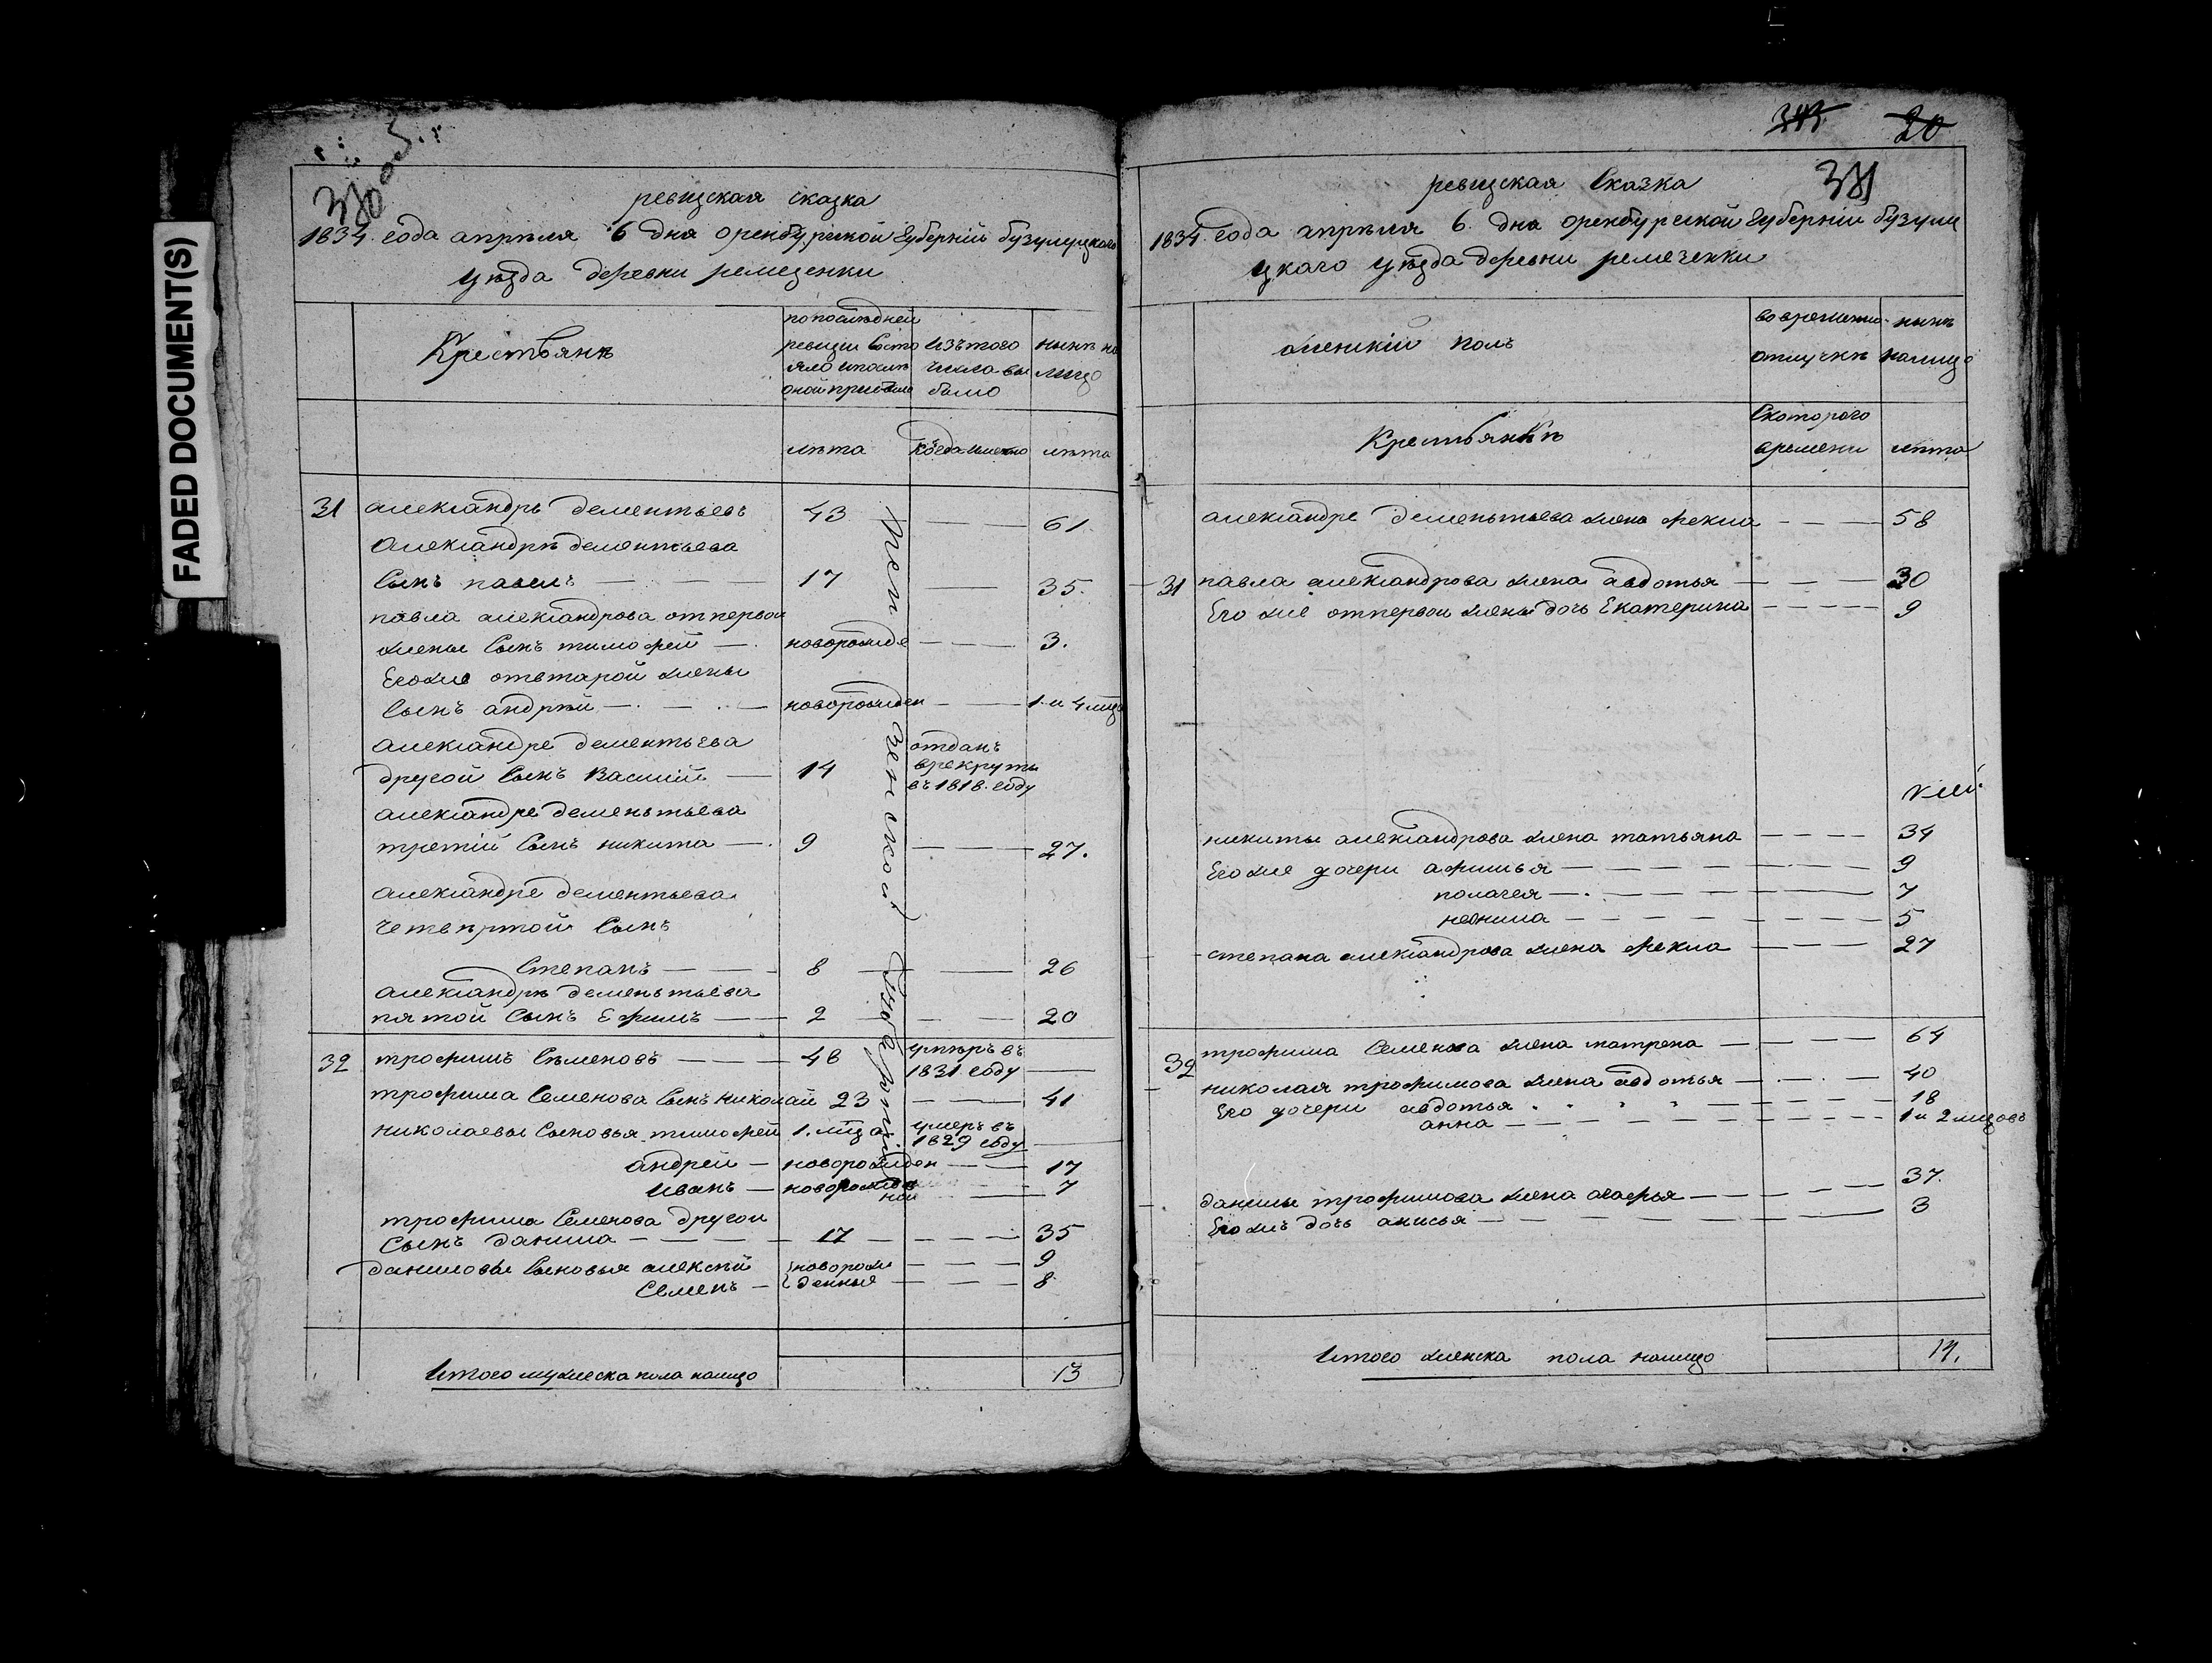 FADED DOCUMENT(S)
380 об.
ревизская сказка
1834. года апрѣля 6 дня оренбургской губерніи бузулуцкаго
уѣзда деревни ремезенки
Крестьянъ
попослѣдней
ревизіи состо
яло ипослѣ
оной прибыло
изътого
числа вы
было
нынѣ на
лицо
лѣта
когда имянно
лѣта
31 александръ дементьевъ 43 — — 61.
Александрѣ дементьева
сынъ павелъ — — — 17 — 35.
павла александрова отпервои
жены сынъ тимофей — новорожде — — 3.
Егоже отвтарой жены
сынъ андрѣй — — — новорожден — — 1 и 4 мца
александре дементьева
другой сынъ Василій — 14 отданъ
врекруты
въ 1818. году
александре деменьтьева
третій сынъ никита — 9 — — 27.
александре дементьева
четвѣртой сынъ
Степанъ — — 8 — — 26
александрѣ деменьтьева
пятой сынъ Ефимъ — — 2 — — 20
32 трофимъ Семеновъ — — — 48 умѣръ въ
1831 году —
трофима Семенова сынъ николай 23 — — 41
николаевы сыновья тимофей 1. мца умеръ въ
1829 году —
андреи — новорожден — — 17
Иванъ — новорожден
ной — — 7
трофима Семенова другои
сынъ данила — — — — 17 — — — — 35
даниловы сыновья алексѣй новорож — — — 9
Семенъ — денные — — — 8
Итого мужеска пола налицо 13
345 20
381
ревизская Сказка
1834. года апрѣля 6. дня оренбургской губерніи бузулу
цкаго уѣзда деревни ремезенки
женскій полъ
вовременно.
отлучкѣ
нынѣ
налицо
Крестьянкѣ
скоторого
времени
лѣта
александре деменьтьева жена фекла — — — 58
31 павла александрова жена авдотья — — — 30
Его же отпервои жены дочь Екатерина — — — — 9
никиты александрова жена татьяна — — — 34
Его же дочери афимья — — — — — 9
полагея — — — — — 7
неонила — — — — — — 5
степана александрова жена фекла — — — 27
трофима Семенова жена матрена — — — — 64
32
николая трофимова жена авдотья — — — 40
Его дочери авдотья — — — 18
анна — — — — — — 1 и 2 мцовъ
данилы трофимова жена агафья — — — — — 37.
Его жъ дочь анисья — — — — — — 3
Итого женска пола налицо 14.